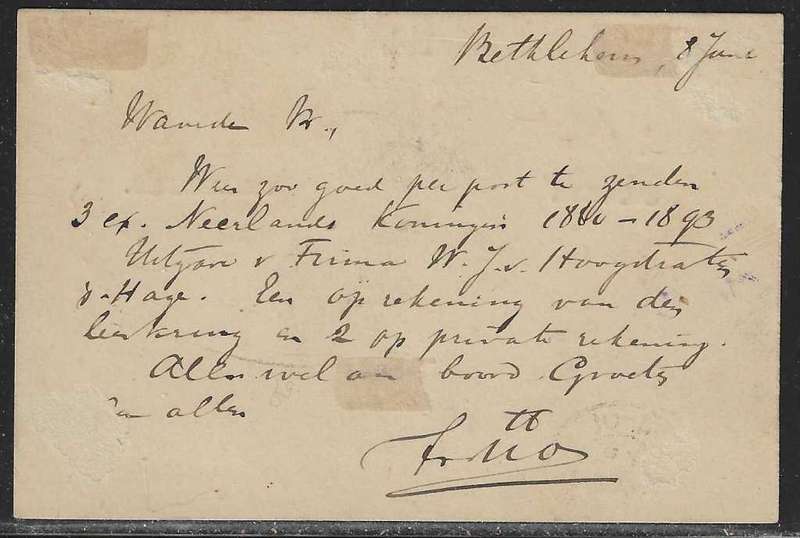 Bethlehem, 8 June
Waarde Br.,
Wees zoo goed per post te zenden
3 ex. Neerlands Koningin 1880–1893
Uitgave v Firma W. J. v. Hoogstraten
's-Hage. Een op rekening van den
leeskring en 2 op private rekening.
Alles wel aan boord. Groeten
aan allen